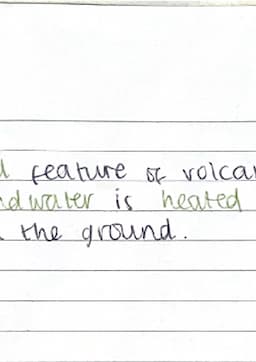 feature of volca
dwater is heated
the ground.